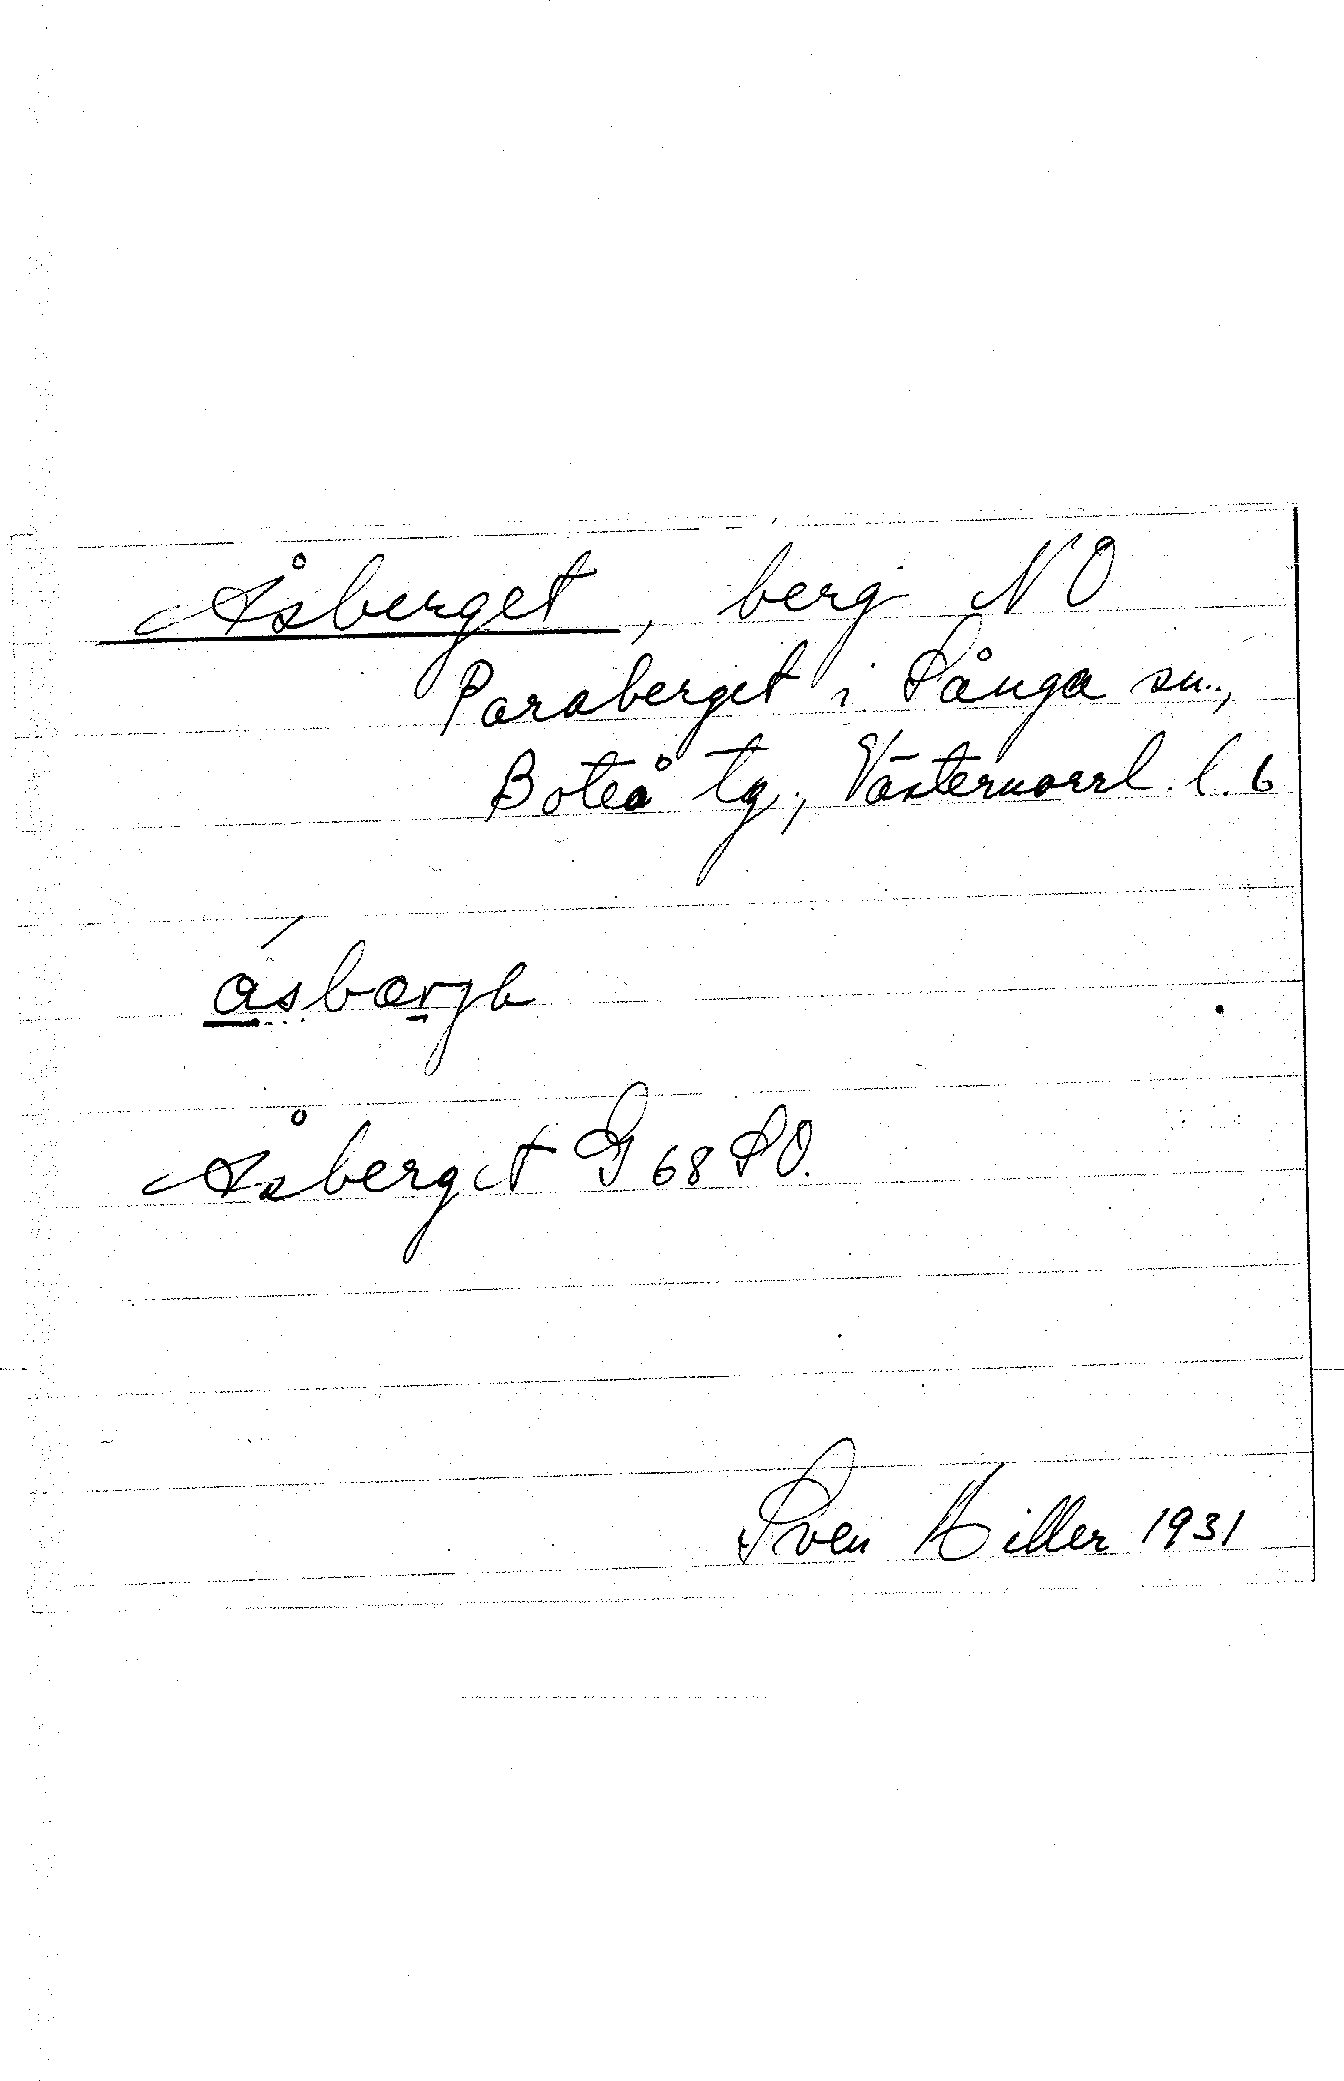 Åsberget, berg NO
Paraberget i Sånga sn.,
Boteå tg., Västernorrl. l. 6
ásbærjh
Åsberget G 68 SO.
Sven Hiller 1931